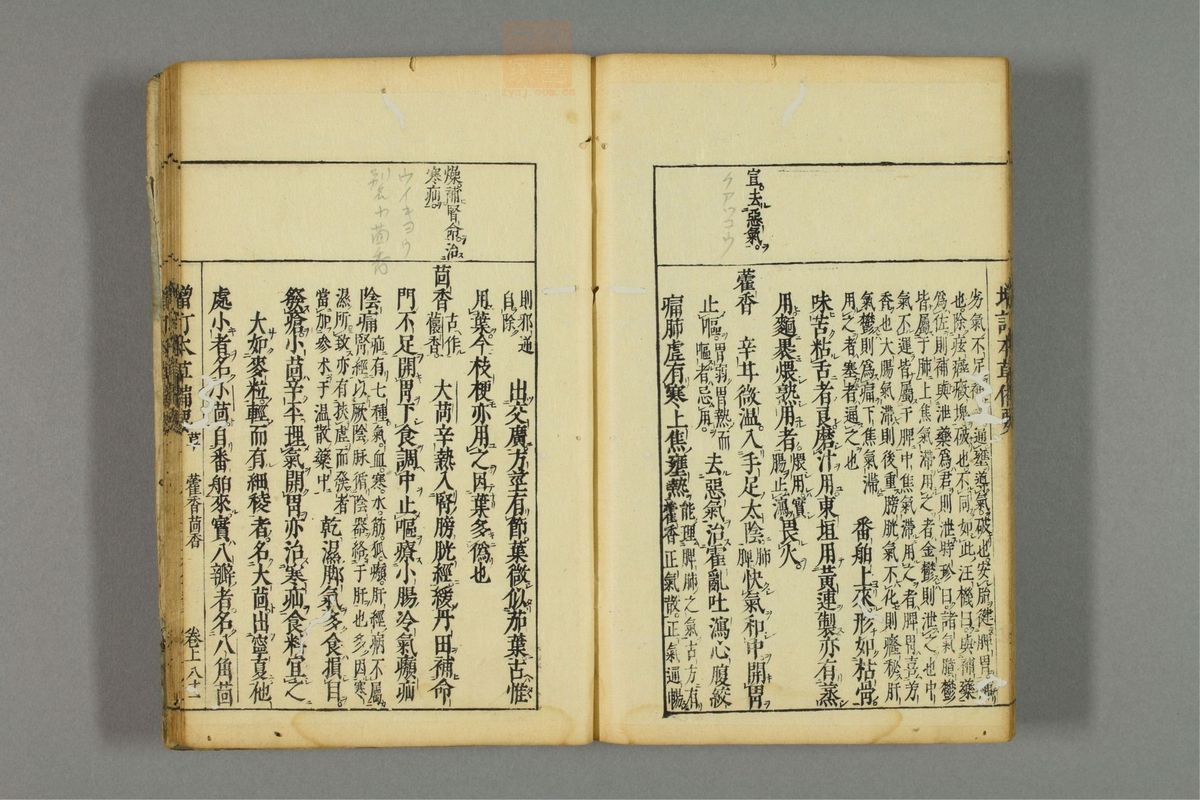 劣氣不足補。通壅導氣。破也安胎健脾胃補
也除痃癖癥塊破也不同如此汪機曰與補藥
爲佐則補與泄藥爲君則泄時珍曰諸氣膹鬱
皆屬于肺上焦氣滯用之者金鬱則泄之也中
氣不運皆屬于脾中焦氣滯用之者脾胃喜芳
香也大腸氣滯則後重膀胱氣不化則癃秘肝
氣鬱則爲痛下焦氣滯
用之者塞者通之也
番舶上來。形如枯骨
味苦粘舌者良磨汁用東垣用黃連製亦有蒸
用麵裹煨熟用者。煨用實腸止瀉畏火
宜去惡氣。
クアツコウ
藿香 辛甘微溫入手足太陰肺脾快氣和中開胃
止嘔。胃弱胃熱而嘔者忌用。去惡氣治霍亂吐瀉心腹絞
痛肺虛有寒上焦壅熱能理脾肺之氣古方有藿香正氣散。正氣通暢
則邪逆自除
出交廣方莖有節葉微似茄葉古惟
用葉今枝梗亦用之因葉多僞也
燥補腎命治
寒疝
ウイキヨウ
茴香古作蘹香 大茴辛熱入腎膀胱經緩丹田補命
門不足開胃下食調中止嘔療小腸冷氣癩疝
陰痛疝有七種氣。血。寒。水。筋。狐。癩。肝經病不屬
腎經以厥陰脉循陰器絡于肝也多因寒
濕所致亦有挾虛而發者
當加參朮于溫散藥中
乾濕脚氣多食損目
發瘡小茴辛平理氣開胃亦治寒疝食料宜之
大如麥粒輕而有細稜者。名大茴出寧夏他
處小者名小茴自番舶來實八瓣者名八角茴
增訂本草備要 草 藿香茴香 卷上